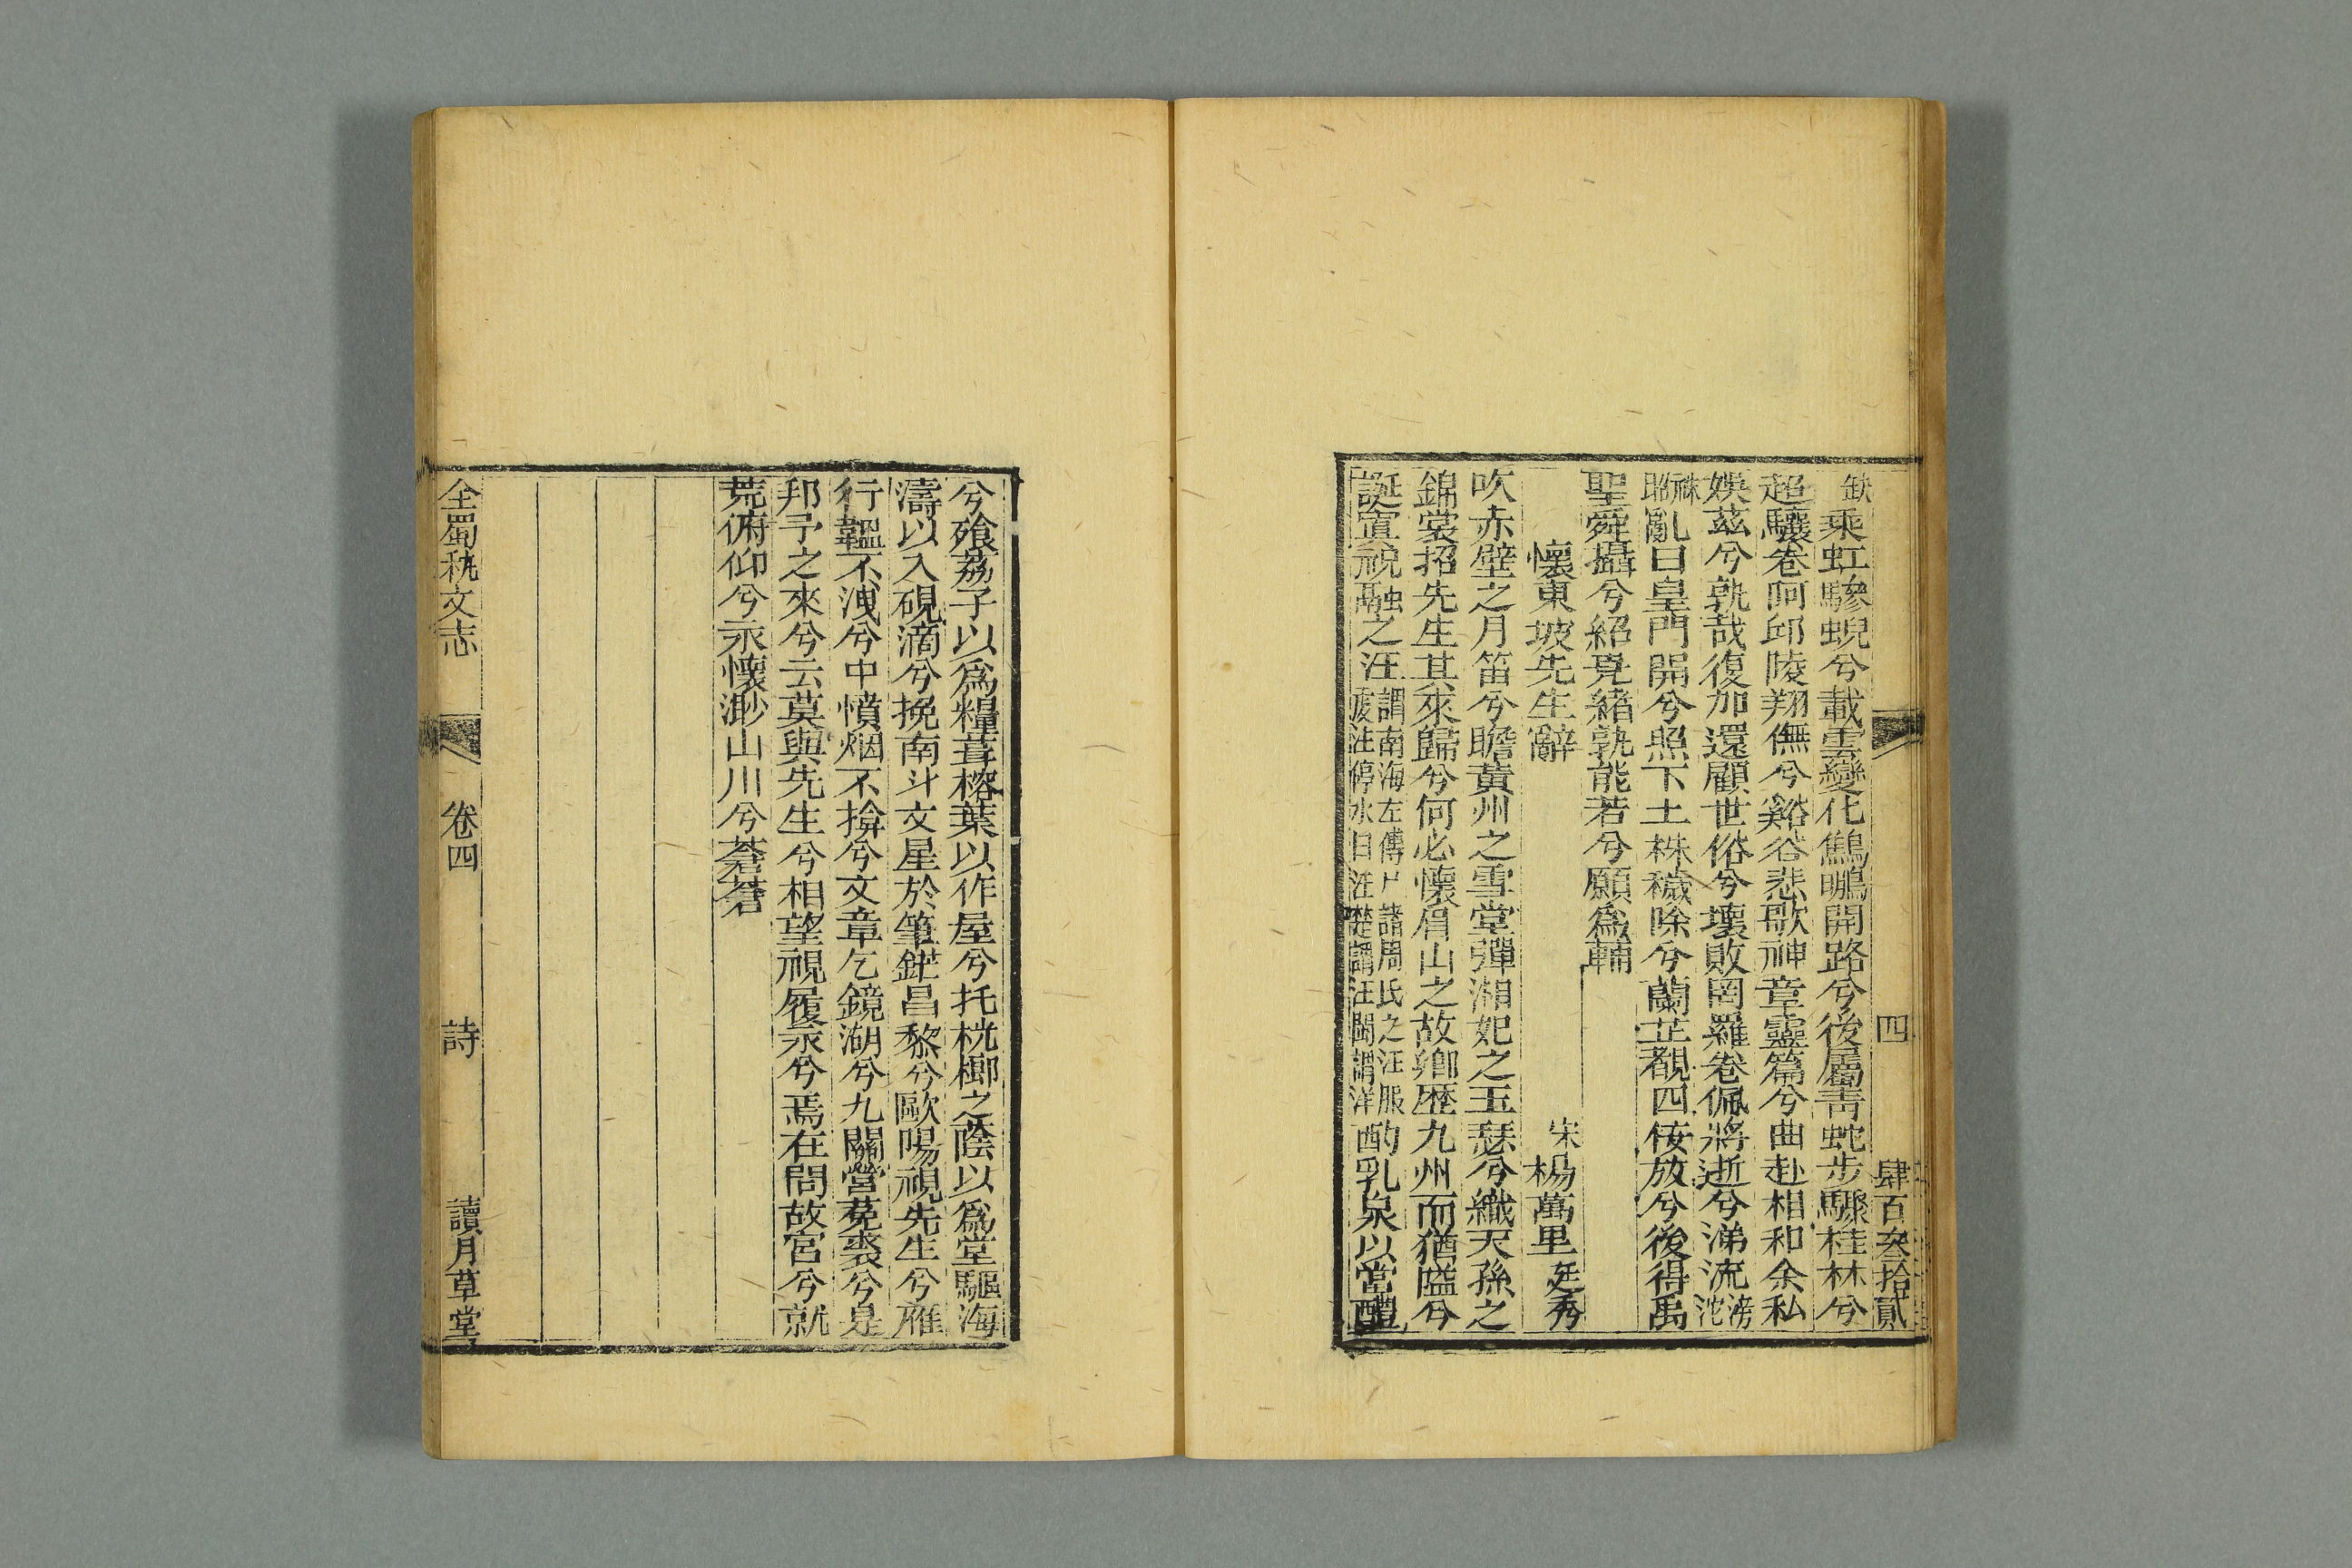 四　肆百叁拾貳
缺乘虹驂蜺兮載雲變化鷦鵬開路兮後屬靑蛇步驟桂林兮
超驤卷阿邱陵翔儛兮谿谷悲歌神章靈篇兮曲赴相和余私
娛茲兮孰哉復加還顧世俗兮壞敗罔羅卷佩將逝兮涕流滂沱
襟昭亂曰皇門開兮照下土株穢除兮蘭芷覩四佞放兮後得禹
聖舜攝兮紹堯緒孰能若兮願爲輔
懷東坡先生辭　宋楊萬里廷秀
吹赤壁之月笛兮瞻黃州之雪堂彈湘妃之玉瑟兮織天孫之
錦裳招先生其來歸兮何必懷眉山之故鄉歷九州而猶隘兮
誕寘祝融之汪謂南海左傳尸諸周氏之汪服虔注停水曰汪楚謂汪閩謂洋酌乳泉以當醴
兮飱荔子以爲糧葺榕葉以作屋兮托桄榔之蔭以爲堂驅海
濤以入硯滴兮挽南斗文星於筆鋩昌黎兮歐陽視先生兮雁
行韞不洩兮中憤烟不揜兮文章乞鏡湖兮九關營菟裘兮是
邦予之來兮云莫與先生兮相望視履永兮焉在問故宮兮就
荒俯仰兮永懷渺山川兮蒼蒼
全蜀秇文志　卷四　詩　讀月草堂